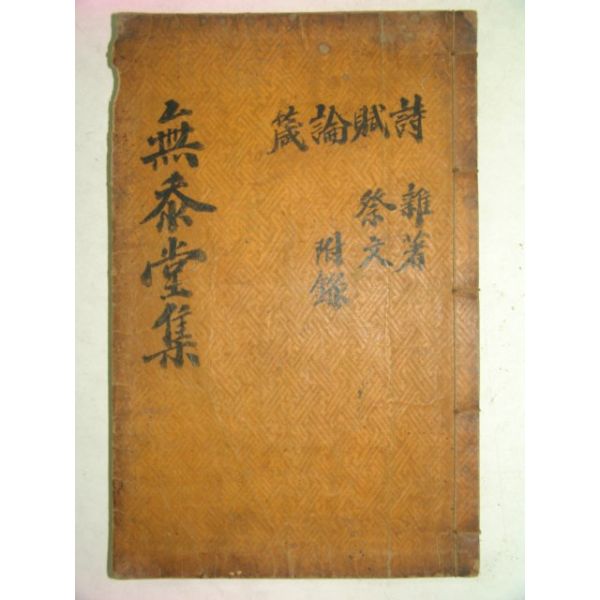 無忝堂集
詩賦論箴
雜著
祭文
附錄